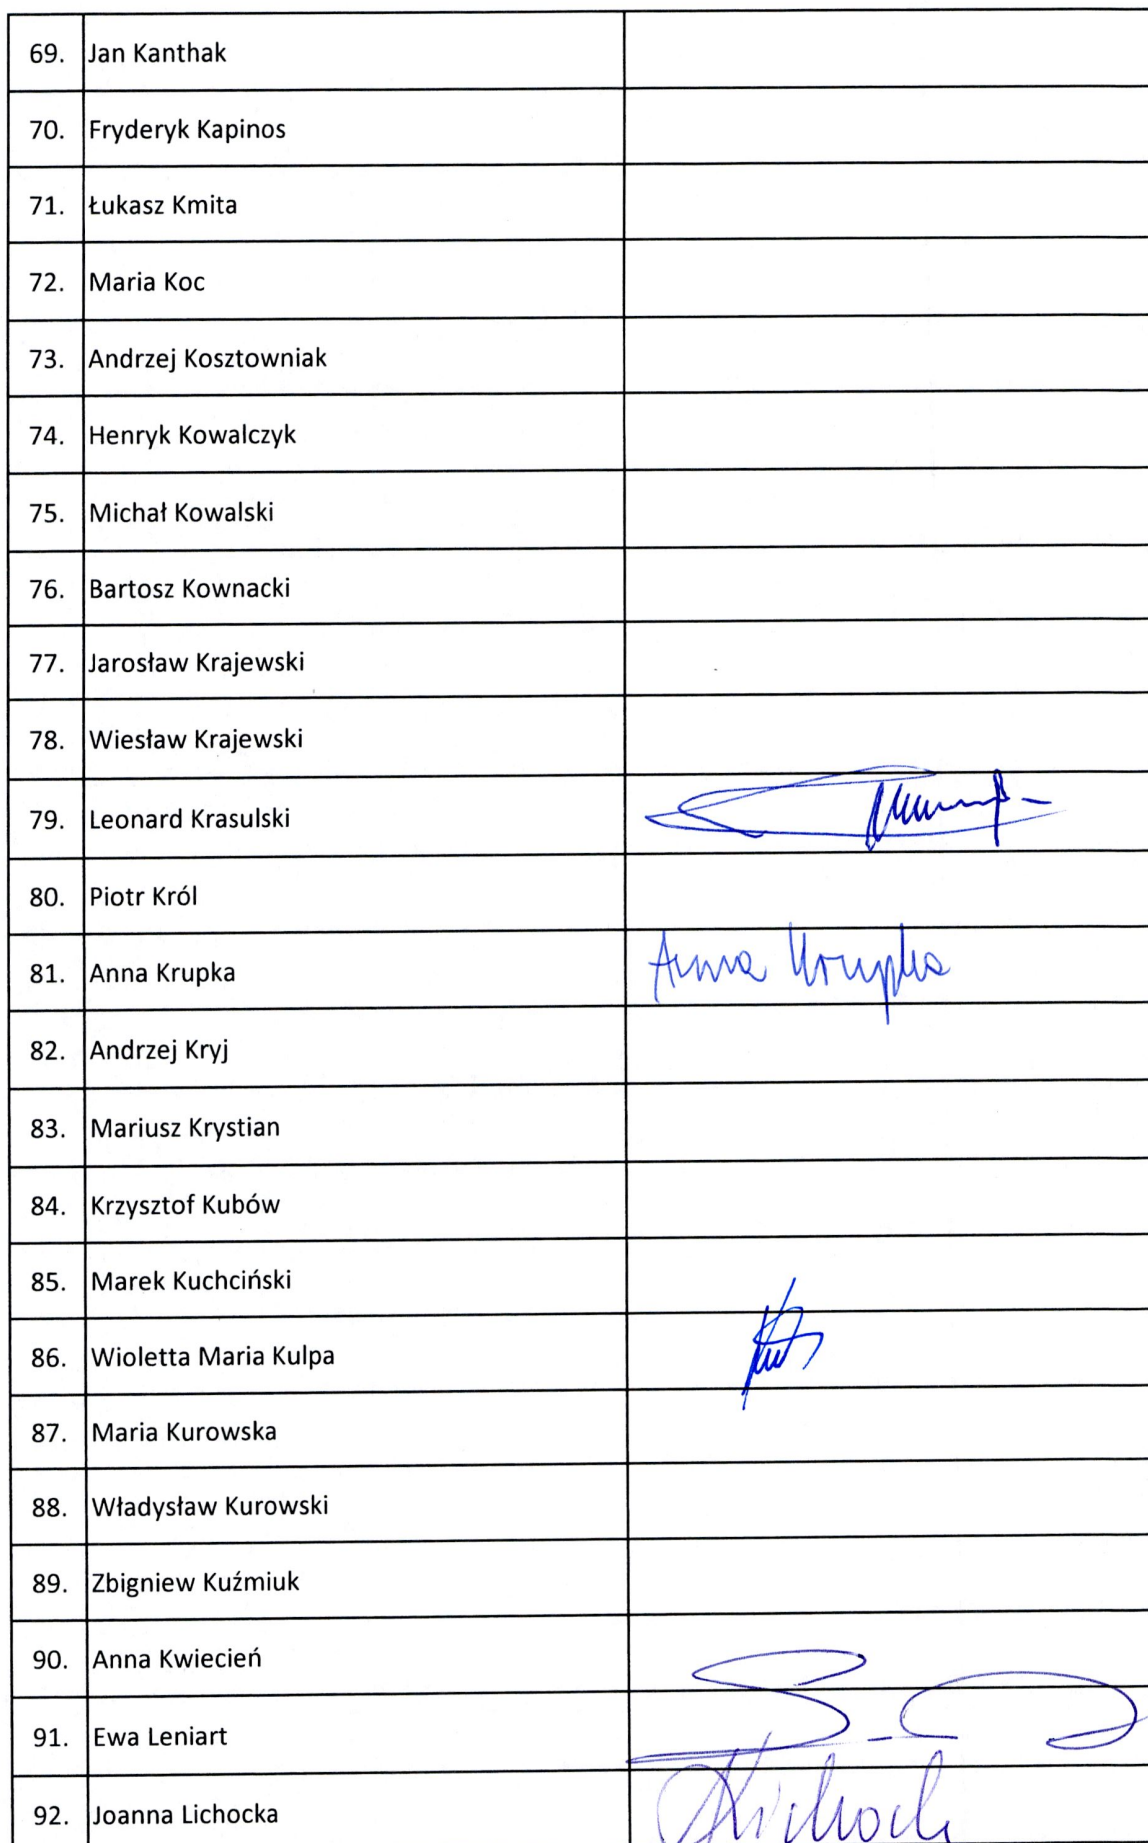 69. Jan Kanthak
70. Fryderyk Kapinos
71. Łukasz Kmita
72. Maria Koc
73. Andrzej Kosztowniak
74. Henryk Kowalczyk
75. Michał Kowalski
76. Bartosz Kownacki
77. Jarosław Krajewski
78. Wiesław Krajewski
79. Leonard Krasulski
80. Piotr Król
81. Anna Krupka Anna Krupka
82. Andrzej Kryj
83. Mariusz Krystian
84. Krzysztof Kubów
85. Marek Kuchciński
86. Wioletta Maria Kulpa
87. Maria Kurowska
88. Władysław Kurowski
89. Zbigniew Kuźmiuk
90. Anna Kwiecień
91. Ewa Leniart
92. Joanna Lichocka